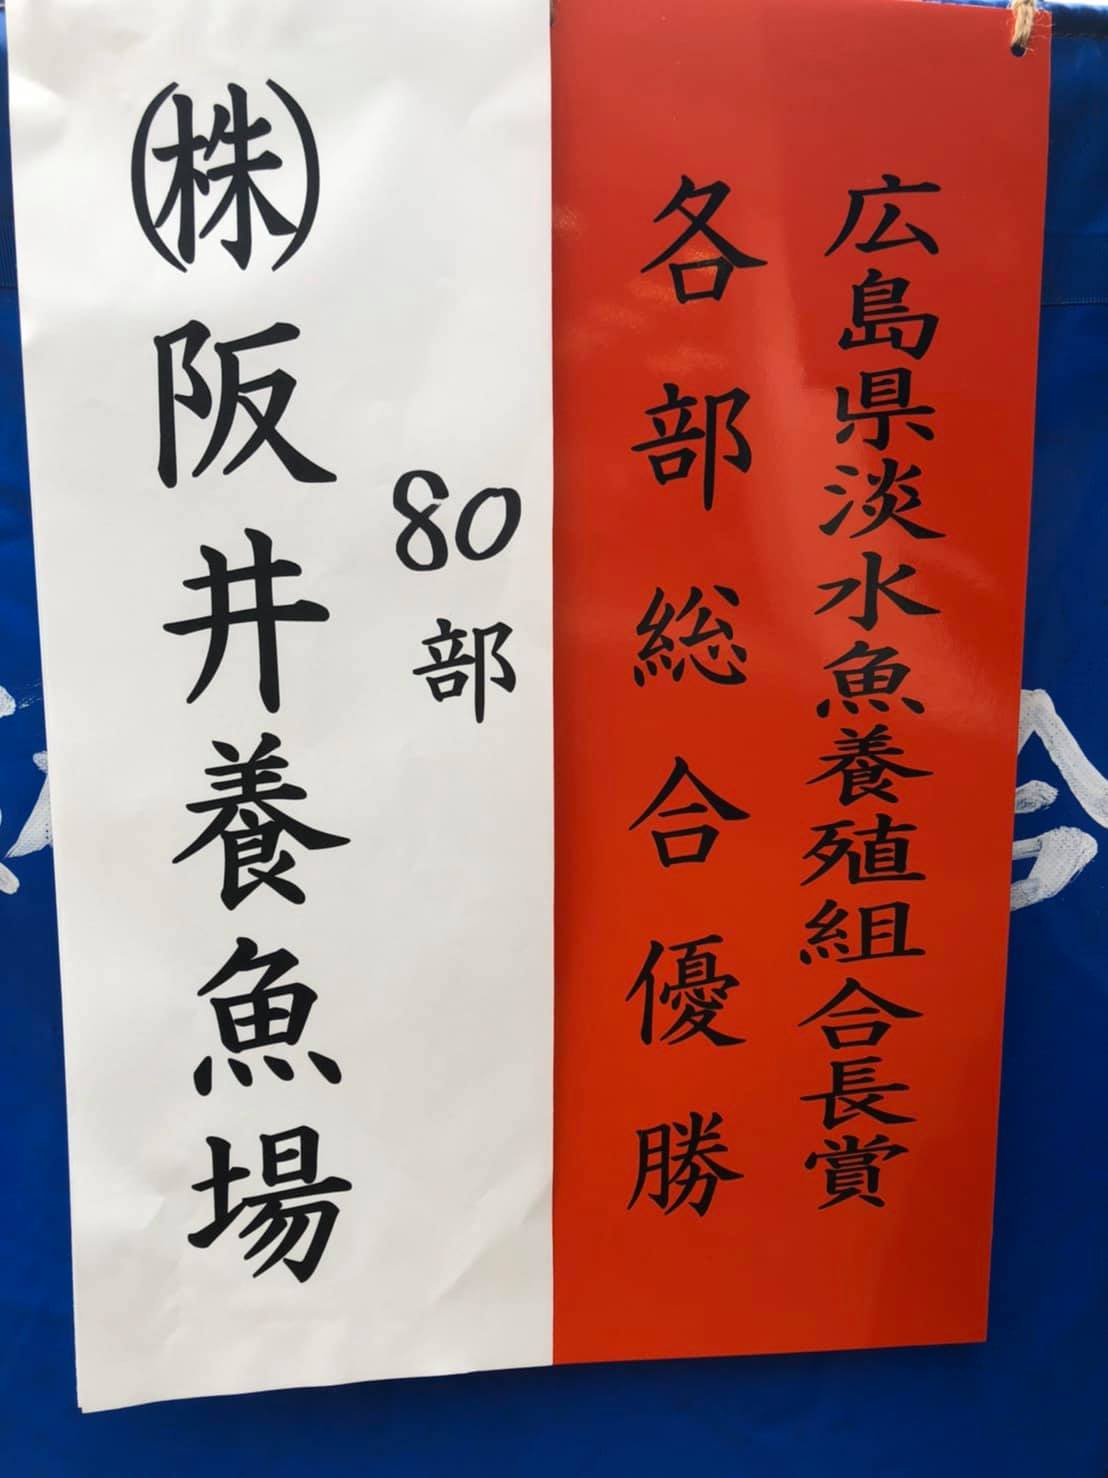 広島県淡水魚養殖組合長賞
各部総合優勝
80部
㈱阪井養魚場